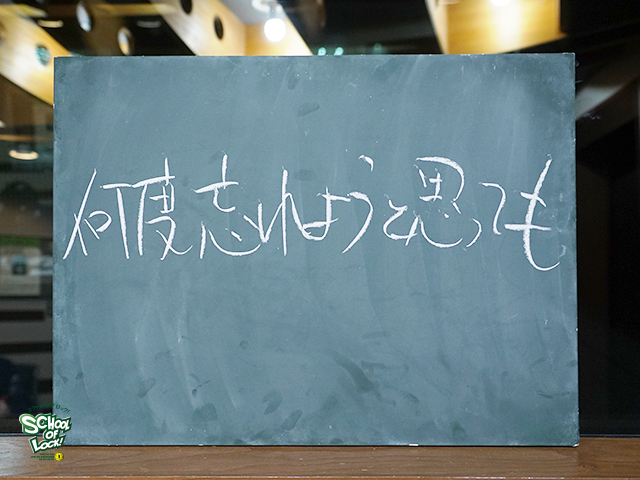 何度忘れようと思っても
SCHOOL
OF
LOCK!